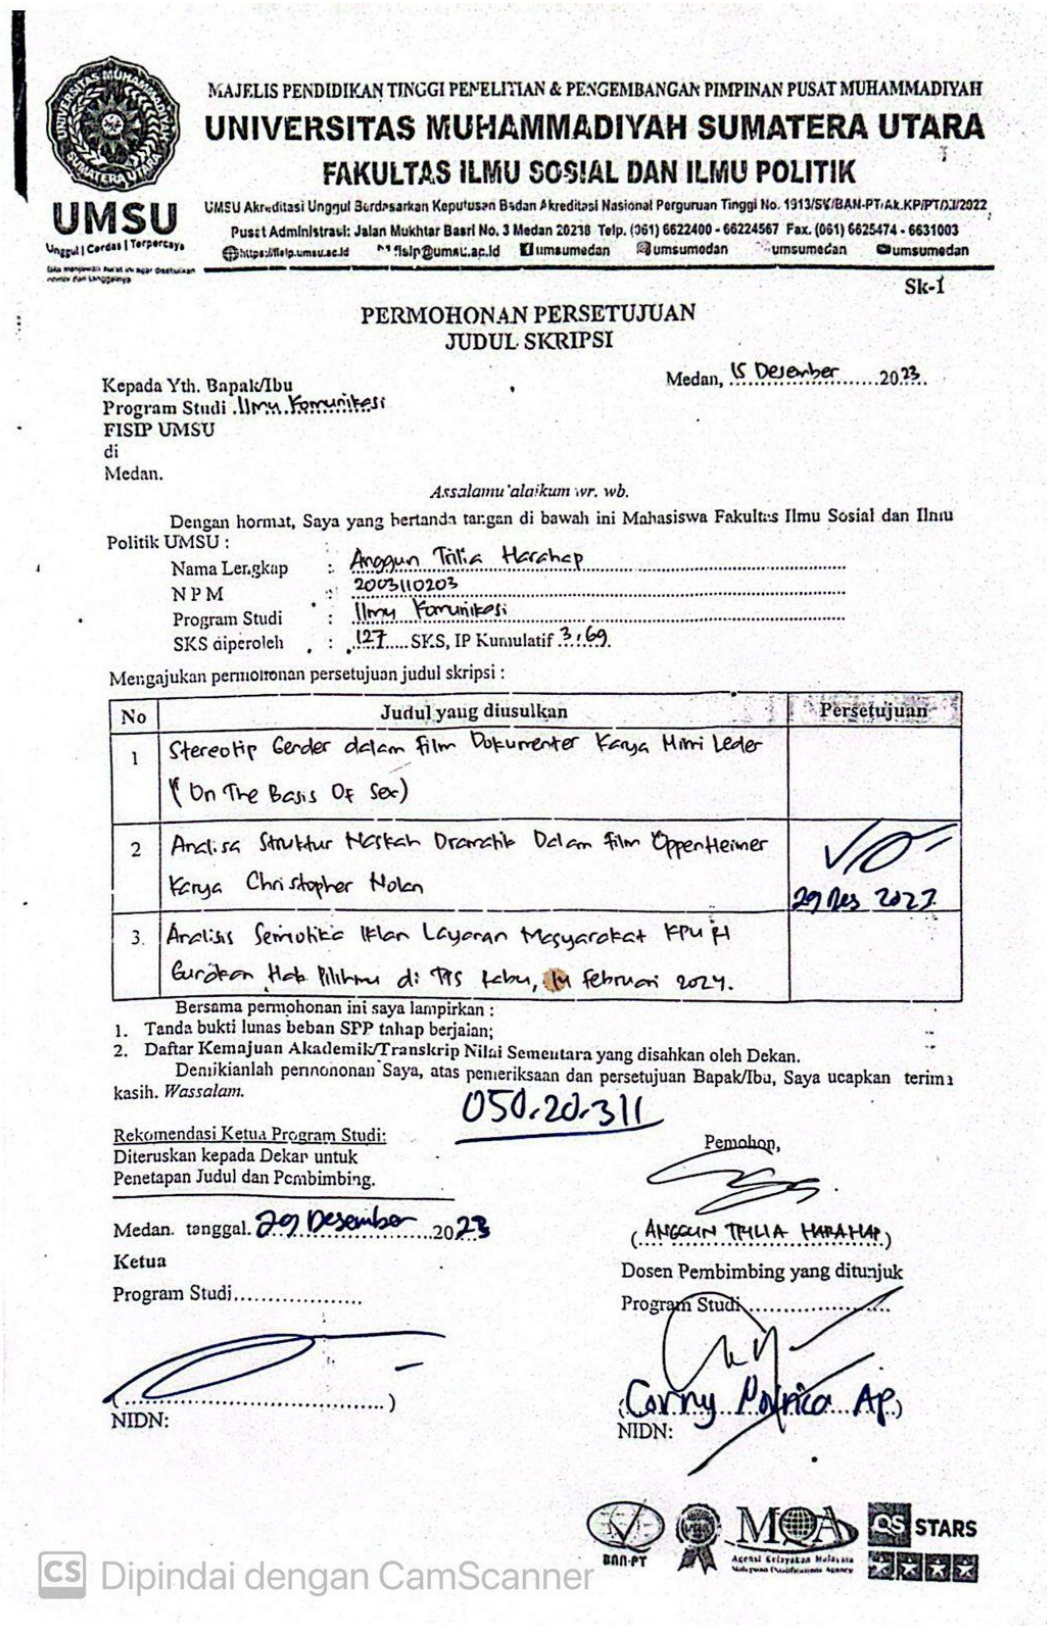 MAJELIS PENDIDIKAN TINGGI PENELITIAN & PENGEMBANGAN PIMPINAN PUSAT MUHAMMADIYAH
UNIVERSITAS MUHAMMADIYAH SUMATERA UTARA
FAKULTAS ILMU SOSIAL DAN ILMU POLITIK
UMSU
Unggul | Cerdas | Terpercaya
UMSU Akreditasi Unggul Berdasarkan Keputusan Badan Akreditasi Nasional Perguruan Tinggi No. 1913/SK/BAN-PT/Ak.KP/PT/XI/2022
Pusat Administrasi: Jalan Mukhtar Basri No. 3 Medan 20238 Telp. (061) 6622400 - 66224567 Fax. (061) 6625474 - 6631003
https://fisip.umsu.ac.id fisip@umsu.ac.id umsumedan umsumedan umsumedan umsumedan
Sk-1
PERMOHONAN PERSETUJUAN
JUDUL SKRIPSI
Medan, 15 Desember 2023
Kepada Yth. Bapak/Ibu
Program Studi Ilmu Komunikasi
FISIP UMSU
di
Medan.
Assalamu'alaikum wr. wb.
Dengan hormat, Saya yang bertanda tangan di bawah ini Mahasiswa Fakultas Ilmu Sosial dan Ilmu
Politik UMSU :
Nama Lengkap : Anggun Trilia Harahap
N P M : 2003110203
Program Studi : Ilmu Komunikasi
SKS diperoleh : 127 SKS, IP Kumulatif 3,69
Mengajukan permohonan persetujuan judul skripsi :
No Judul yang diusulkan Persetujuan
1 Stereotip Gender dalam film Dokumenter Karya Mimi Leder
(On The Basis Of Sex)
2 Analisa Struktur Naskah Dramatik Dalam film Oppenheimer
Karya Christopher Nolan
29 Des 2023
3. Analisis Semiotika Iklan Layanan Masyarakat KPU RI
Gunakan Hak Pilihmu di TPS Rabu, 14 Februari 2024.
Bersama permohonan ini saya lampirkan :
1. Tanda bukti lunas beban SPP tahap berjalan;
2. Daftar Kemajuan Akademik/Transkrip Nilai Sementara yang disahkan oleh Dekan.
Demikianlah permohonan Saya, atas pemeriksaan dan persetujuan Bapak/Ibu, Saya ucapkan terima
kasih. Wassalam.
050.20.311
Rekomendasi Ketua Program Studi:
Diteruskan kepada Dekan untuk
Penetapan Judul dan Pembimbing.
Pemohon,
Medan, tanggal. 29 Desember 2023
(ANGGUN TRILIA HARAHAP)
Ketua
Program Studi..................
Dosen Pembimbing yang ditunjuk
Program Studi....................
(....................................)
NIDN:
(Corry Novrica AP)
NIDN:
BAN-PT
MQA
Agensi Kelayakan Malaysia
Malaysian Qualifications Agency
QS STARS
CS Dipindai dengan CamScanner